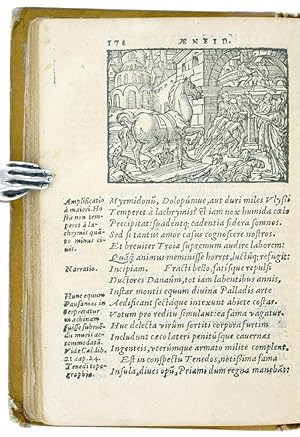 174 ÆNEID.
Amplificatio
à maiori. Ho
stis non tem
peret à la-
chrymis quã
to minus ci-
uis.
Narratio.
Hunc equum
Pausanias in
terpretatur
machinam
fuisse subruẽ
dis muris ac
commodatã.
Vide Cal. lib.
21. cap. 24.
Tenedi topo
graphia.
Myrmidonũ, Dolopúmue, aut duri miles Vlyssi
Temperet à lachrymis? & iam nox humida cælo
Præcipitat: suadentq; cadentia sidera somnos.
Sed si tantus amor casus cognoscere nostros,
Et breuiter Troiæ supremum audire laborem:
Quãq̃ animus meminisse horret, luctuq; refugit:
Incipiam. Fracti bello, fatisque repulsi
Ductores Danaûm, tot iam labentibus annis,
Instar montis equum diuina Palladis arte
Aedificant: sectáque intexunt abiete costas.
Votum pro reditu simulant: ea fama vagatur.
Huc delecta virûm sortiti corpora furtim
Includunt cæco lateri penitúsque cauernas
Ingenteis, vterúmque armato milite complent.
Est in conspectu Tenedos, notissima fama
Insula, diues opũ, Priami dum regna manebãt: